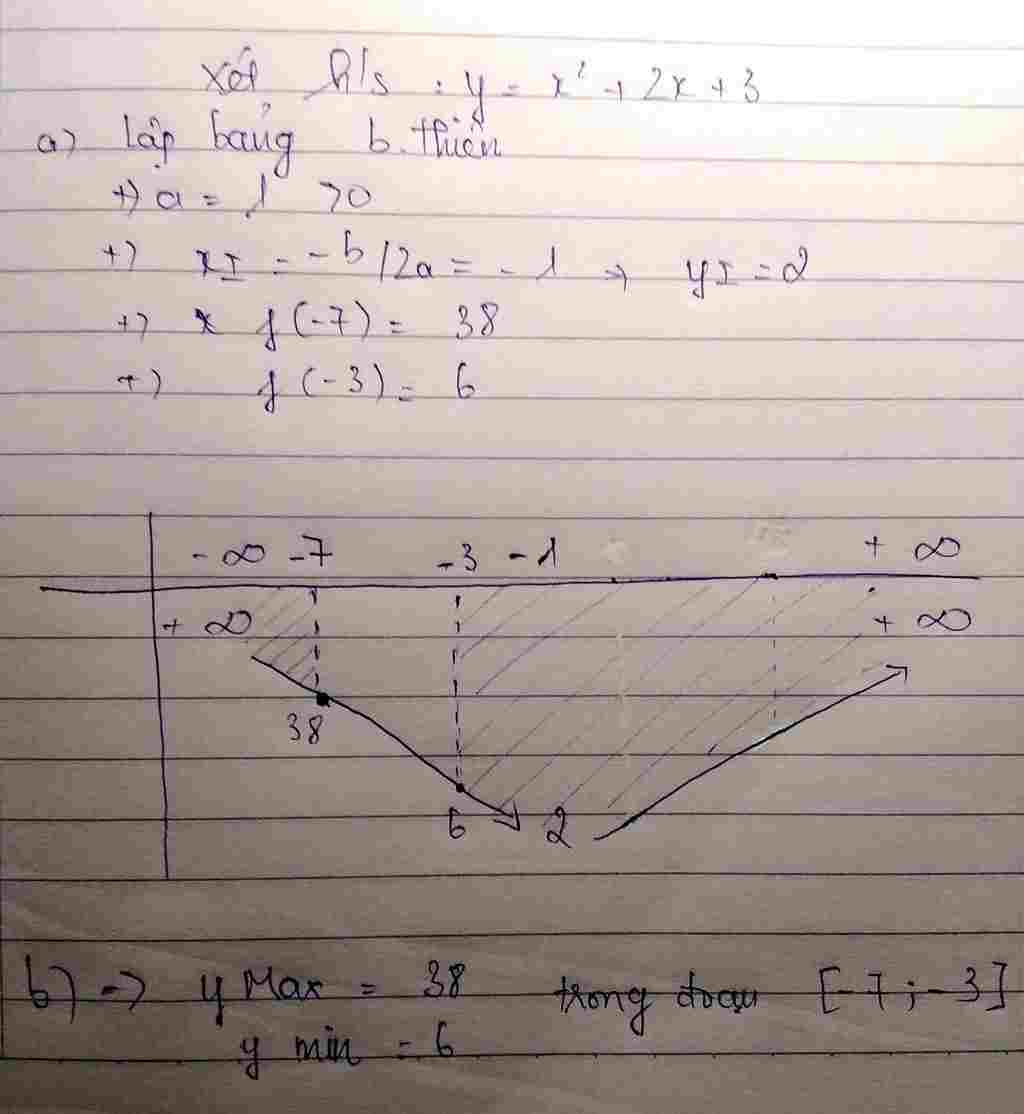 Xét h/s : y = x² + 2x + 3
a) lập bảng b.thiên
+) a = 1 >0
+) xI = -b/2a = -1 → yI = 2
+) f(-7) = 38
+) f(-3) = 6
-∞ -7 -3 -1 +∞
+∞ +∞
38
6 2
b) → y Max = 38 trong đoạn [-7;-3]
y min = 6